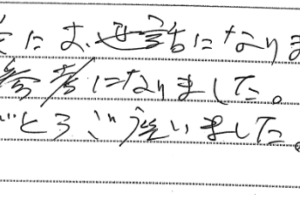 にお世話になりま
参考になりました。
とうございました。